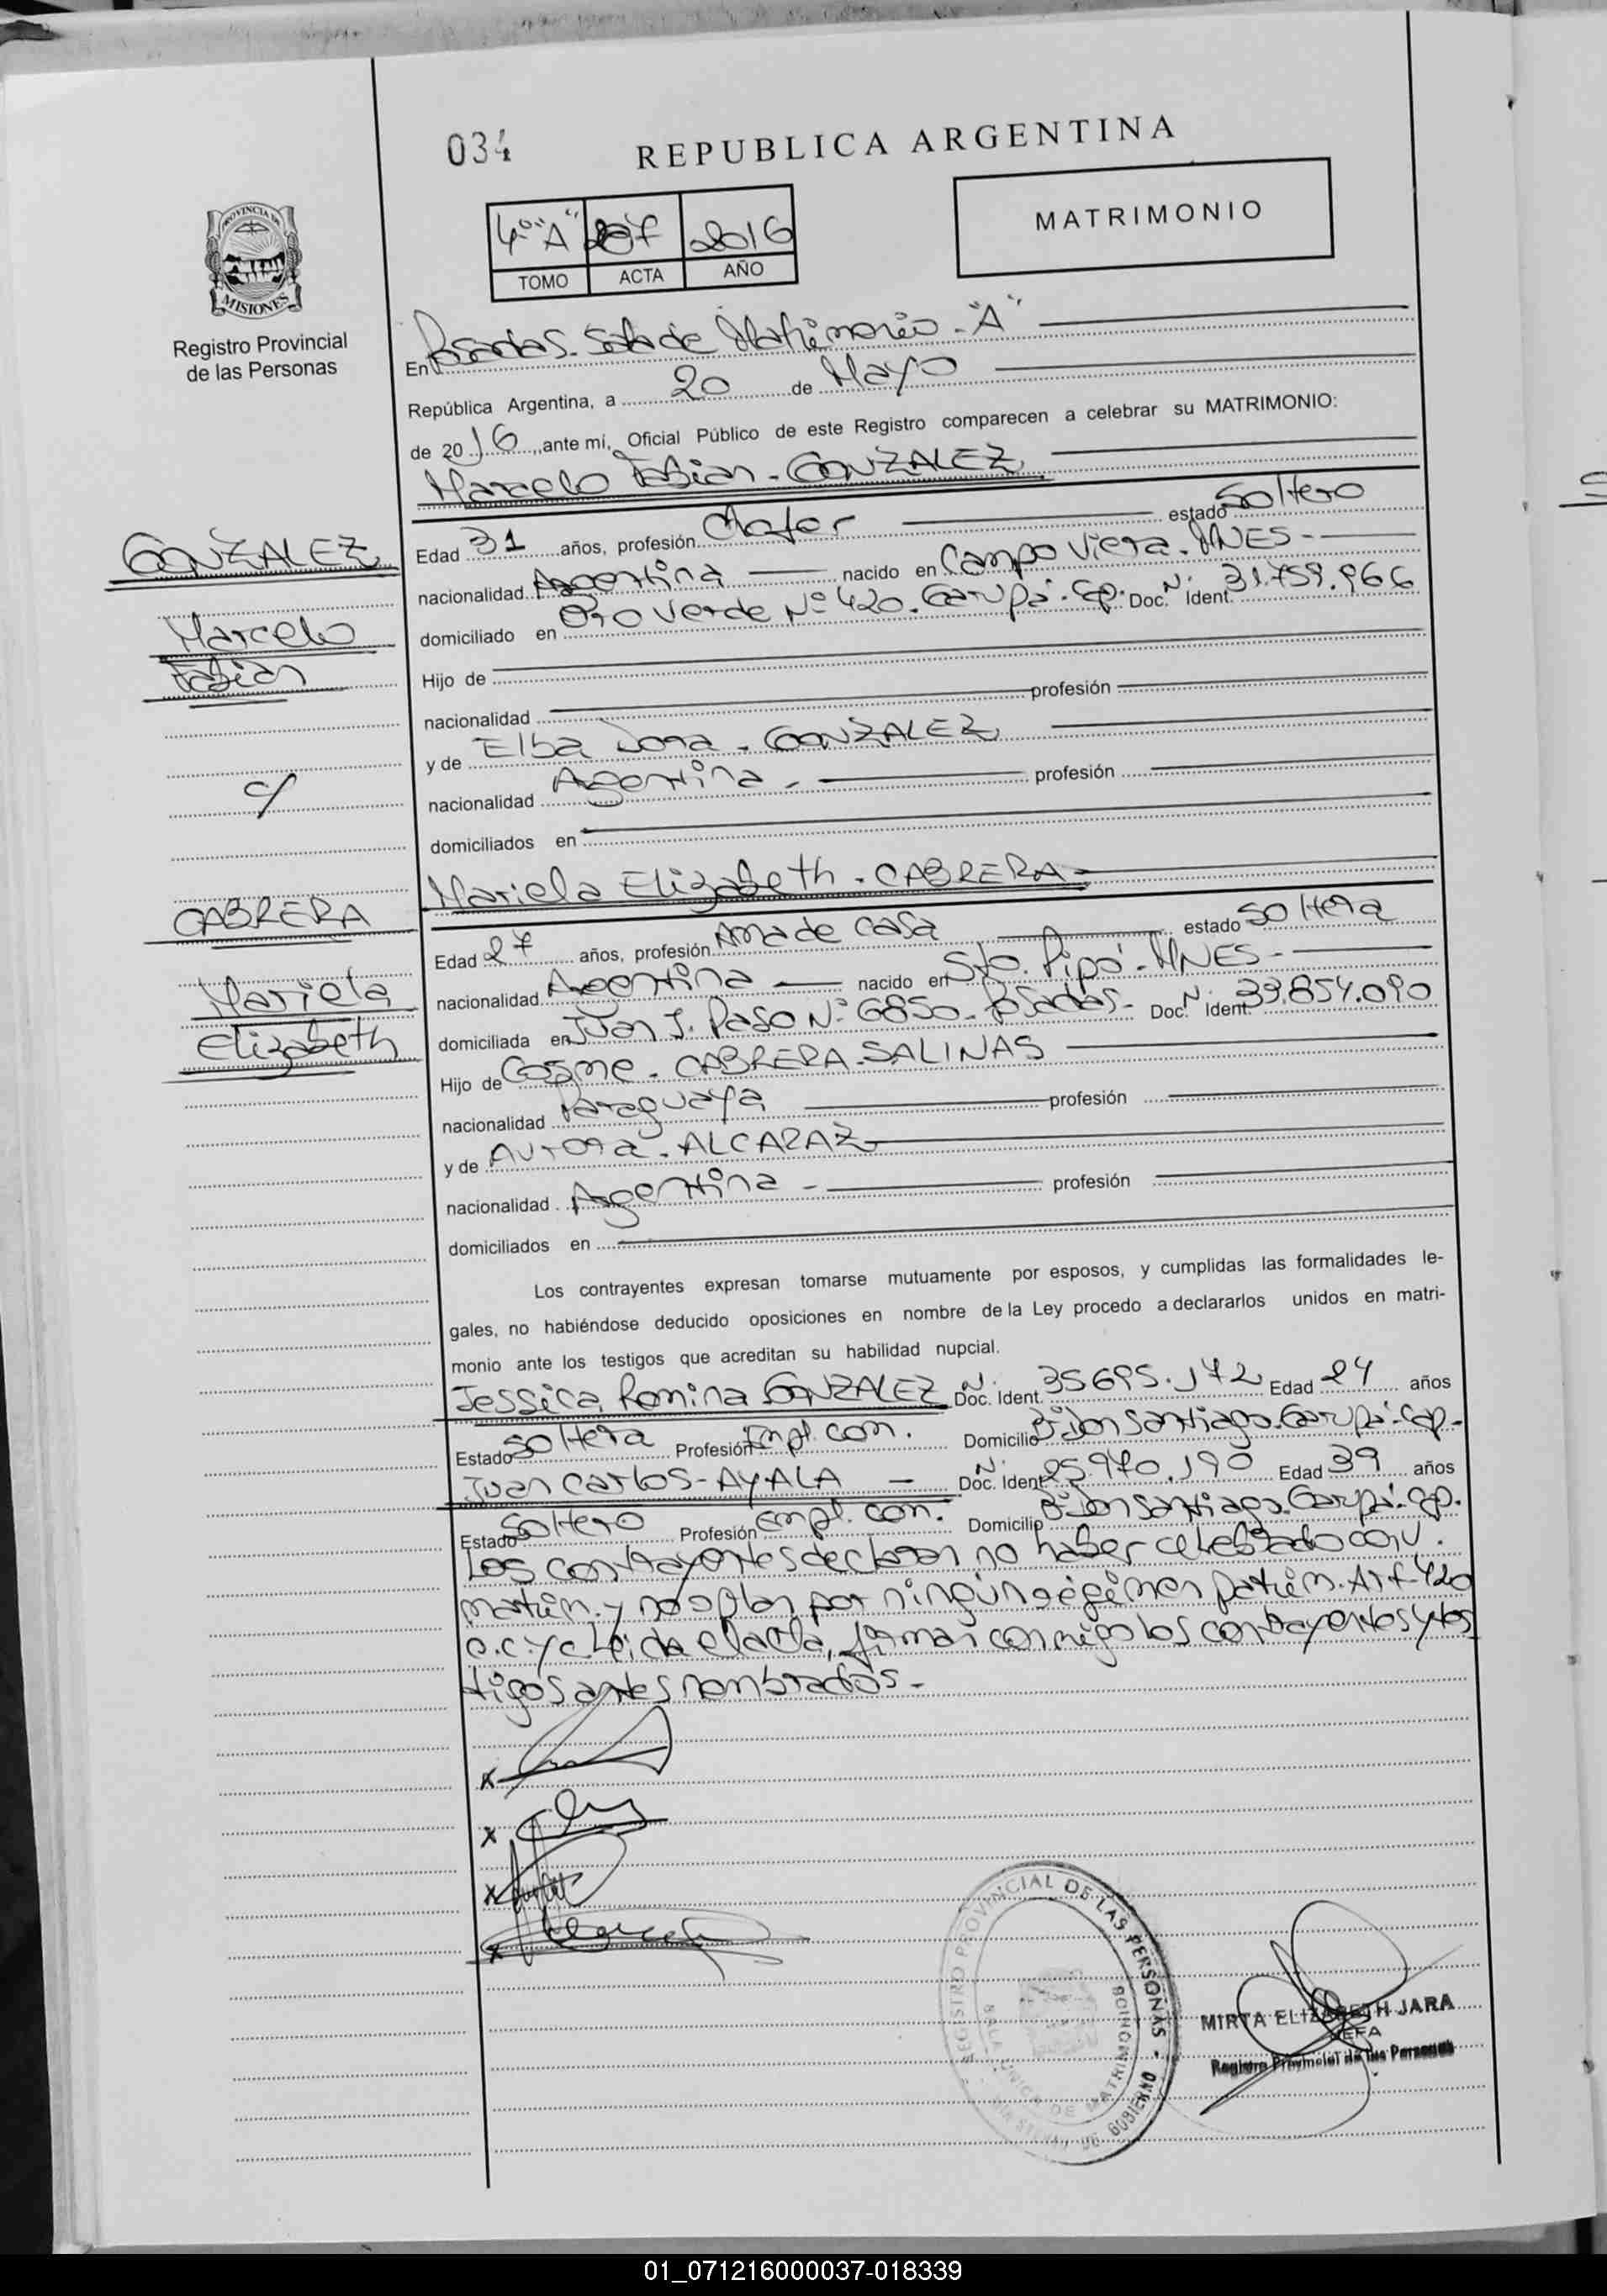 034
REPUBLICA ARGENTINA
4º "A" 207 2016
TOMO ACTA AÑO
MATRIMONIO
PROVINCIA DE
MISIONES
Registro Provincial
de las Personas
En Posadas. Sala de Matrimonio - "A"
República Argentina, a 20 de Mayo
de 2016, ante mí, Oficial Público de este Registro comparecen a celebrar su MATRIMONIO:
Marcelo Fabian - GONZALEZ
GONZALEZ
Marcelo
Fabian
c/
CABRERA
Mariela
Elizabeth
Edad 31 años, profesión Chofer estado Soltero
nacionalidad Argentina nacido en Campo Viera. MNES -
domiciliado en Oro Verde Nº 420. Garupá. Cap. Doc. Nº Ident. 31.759.966
Hijo de
nacionalidad profesión
y de Elba Dora - GONZALEZ
nacionalidad Argentina - profesión
domiciliados en
Mariela Elizabeth - CABRERA
Edad 27 años, profesión Ama de casa estado Soltera
nacionalidad Argentina nacido en Sto. Pipó - MNES -
domiciliada en Juan J. Paso Nº 6850 - Posadas - Doc. Nº Ident 39.854.090
Hijo de Cosme - CABRERA - SALINAS
nacionalidad Paraguaya profesión
y de Aurora - ALCARAZ
nacionalidad Argentina - profesión
domiciliados en
Los contrayentes expresan tomarse mutuamente por esposos, y cumplidas las formalidades le-
gales, no habiéndose deducido oposiciones en nombre de la Ley procedo a declararlos unidos en matri-
monio ante los testigos que acreditan su habilidad nupcial.
Jessica Romina GONZALEZ Doc. Nº Ident. 35695.172 Edad 24 años
Estado Soltera Profesión Empl. com. Domicilio Bº Don Santiago - Garupá - Cap -
Juan Carlos - AYALA - Doc. Nº Ident 25.970.190 Edad 39 años
Estado Soltero Profesión Empl. com. Domicilio Bº Don Santiago. Garupá. Cap.
Los contrayentes declaran no haber celebrado conv.
matrim. y no optan por ningún régimen patrim. Art 420
C.C. y C. Leida el acta, firman conmigo los contrayentes y tes
tigos antes nombrados. -
x
x
x
x
REGISTRO PROVINCIAL DE LAS PERSONAS
MINISTERIO DE GOBIERNO
SALA UNICA DE MATRIMONIOS
MIRTA ELIZABETH JARA
JEFA
Registro Provincial de las Personas
01_071216000037-018339